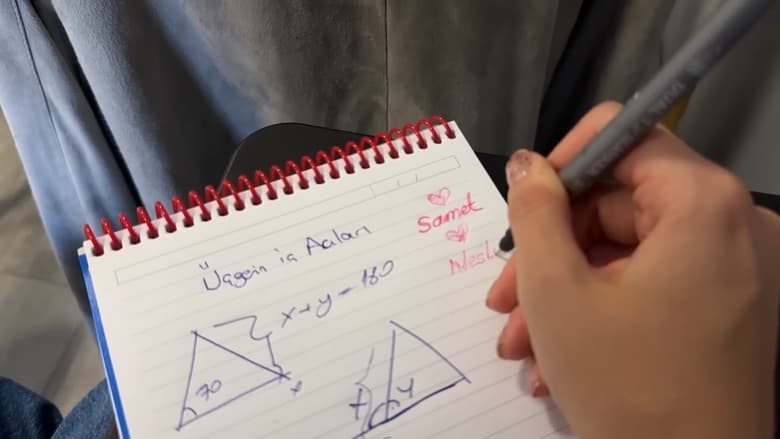 Üçgein iç Açıları
Samet
x+y=180
70
x
y